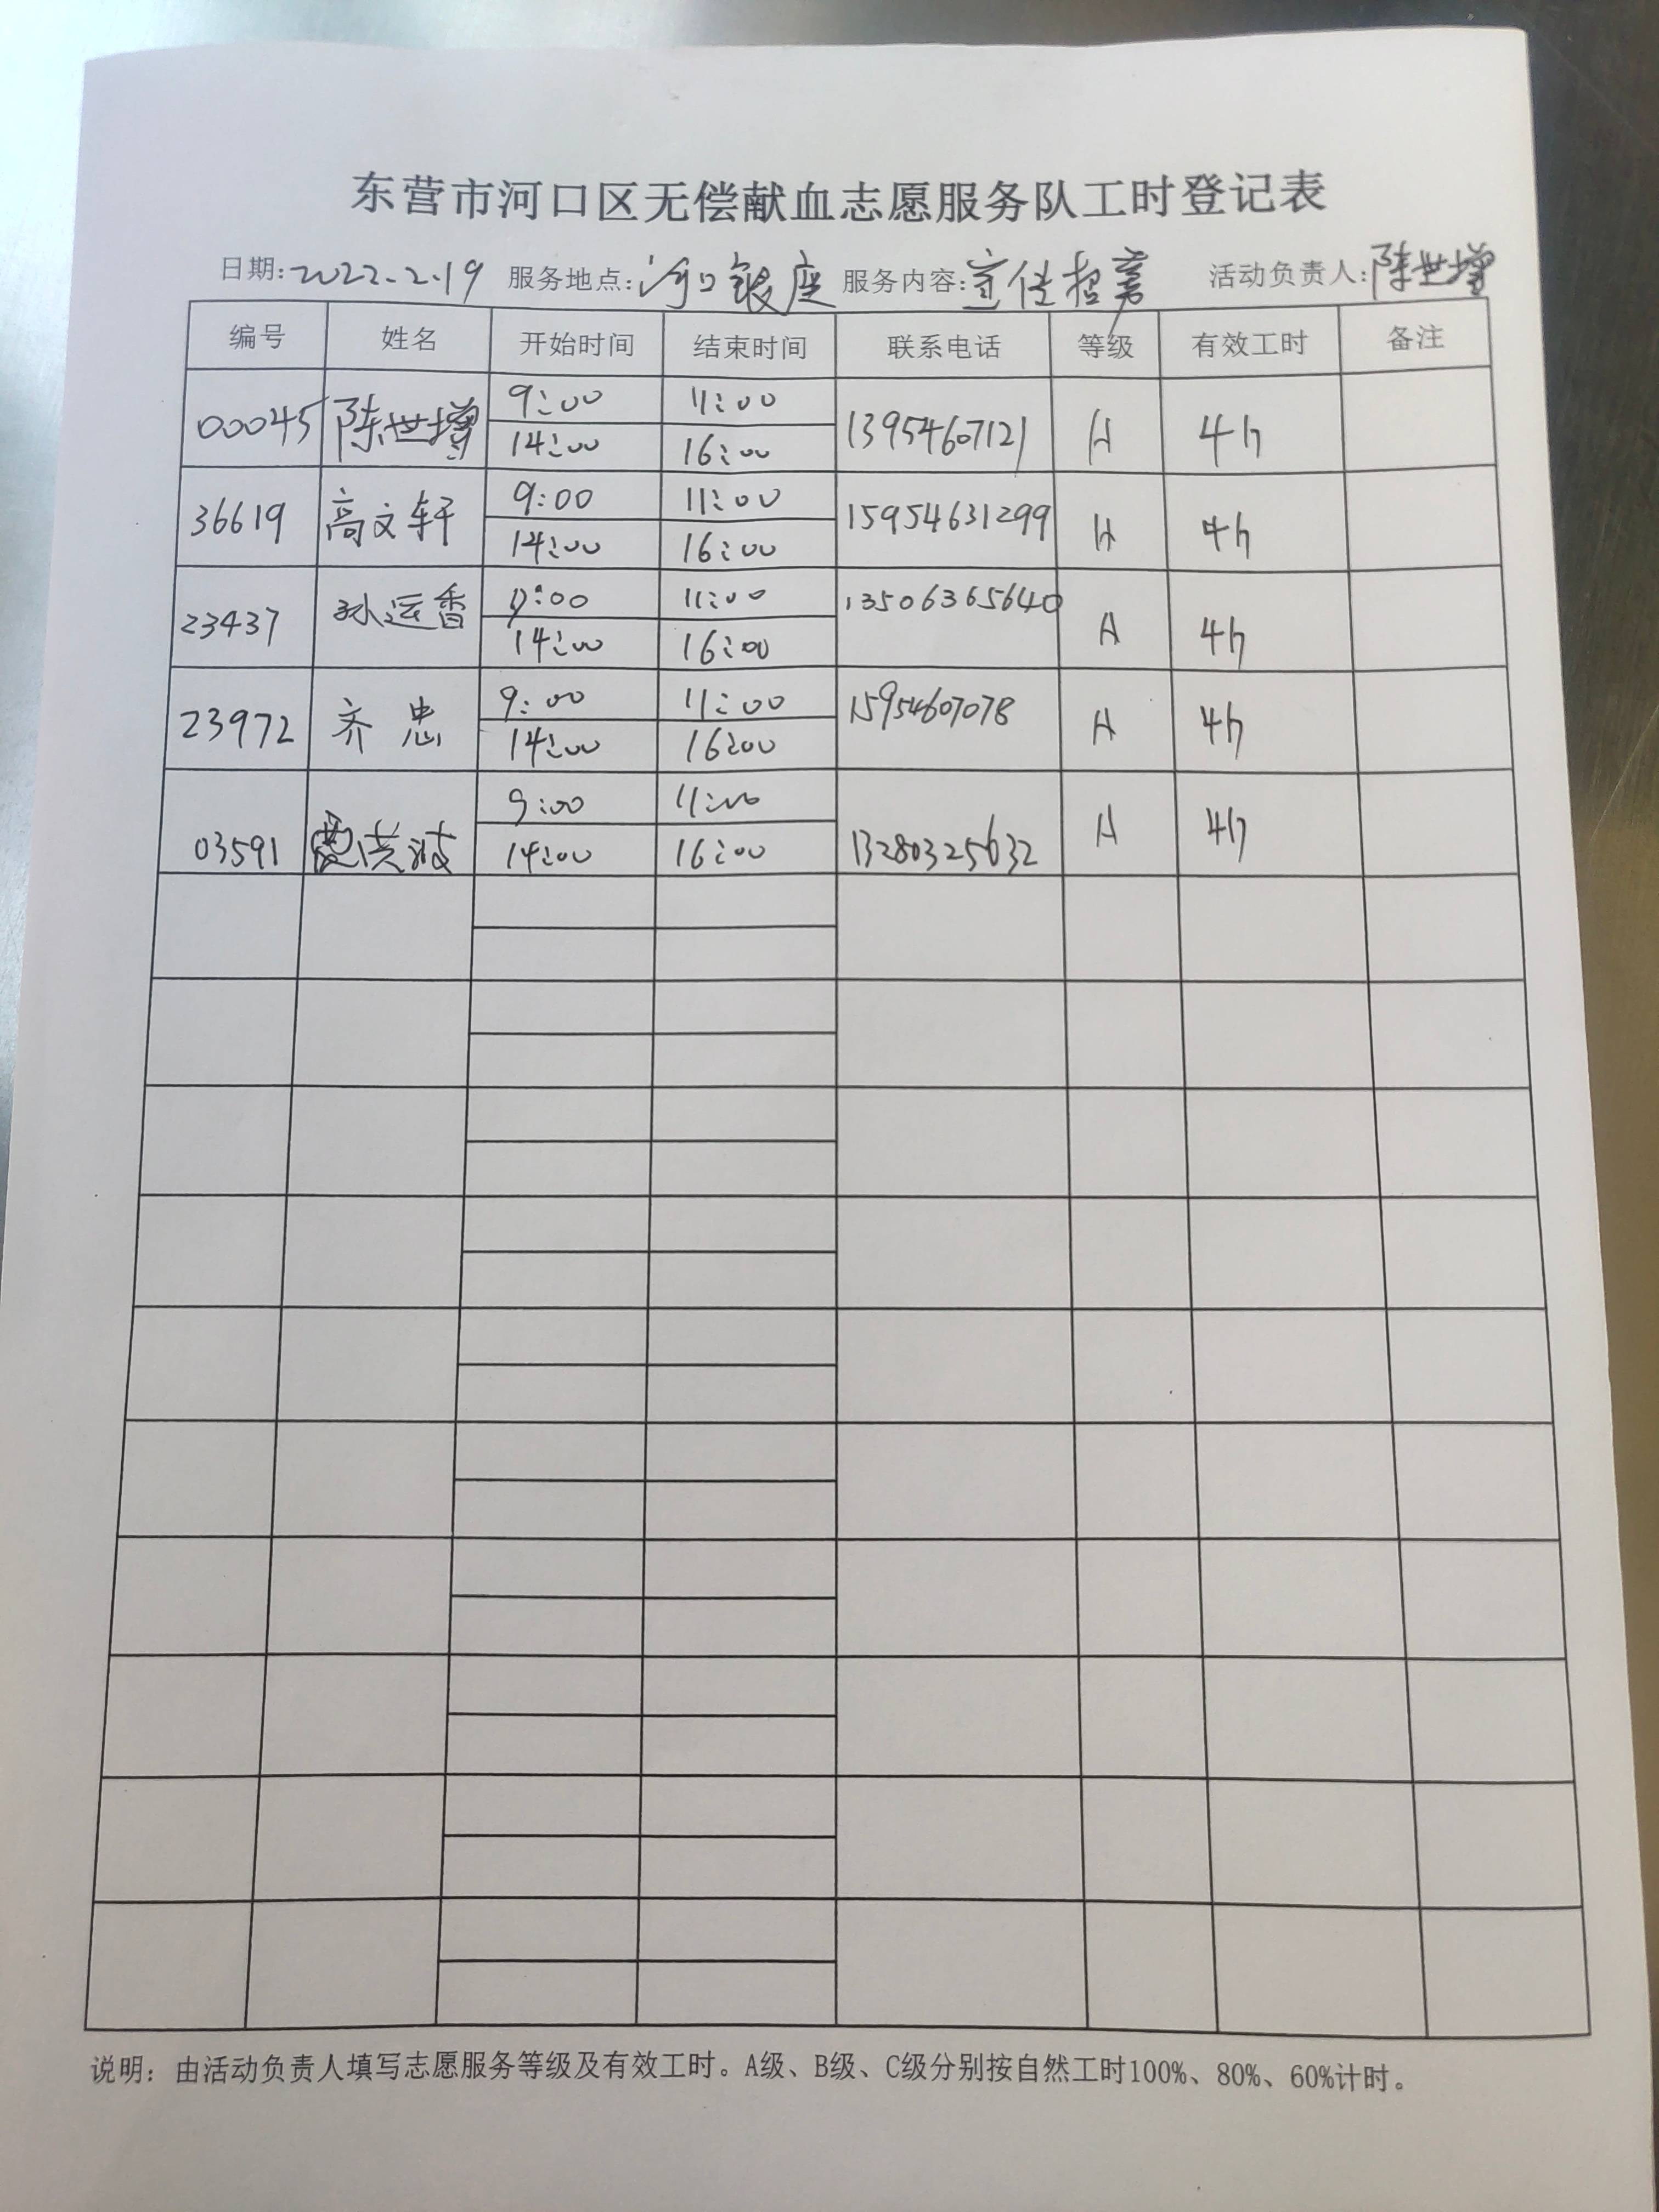 东营市河口区无偿献血志愿服务队工时登记表
日期:2022.2.19 服务地点:河口银座 服务内容:宣传招募 活动负责人:陈世增
编号 姓名 开始时间 结束时间 联系电话 等级 有效工时 备注
00045 陈世增 9:00 11:00 13954607121 A 4h
14:00 16:00
36619 高文轩 9:00 11:00 15954631299 A 4h
14:00 16:00
23437 孙运香 9:00 11:00 13506365640 A 4h
14:00 16:00
23972 齐忠 9:00 11:00 15954607078 A 4h
14:00 16:00
03591 洪波 9:00 11:00 13280325632 A 4h
14:00 16:00
说明：由活动负责人填写志愿服务等级及有效工时。A级、B级、C级分别按自然工时100%、80%、60%计时。